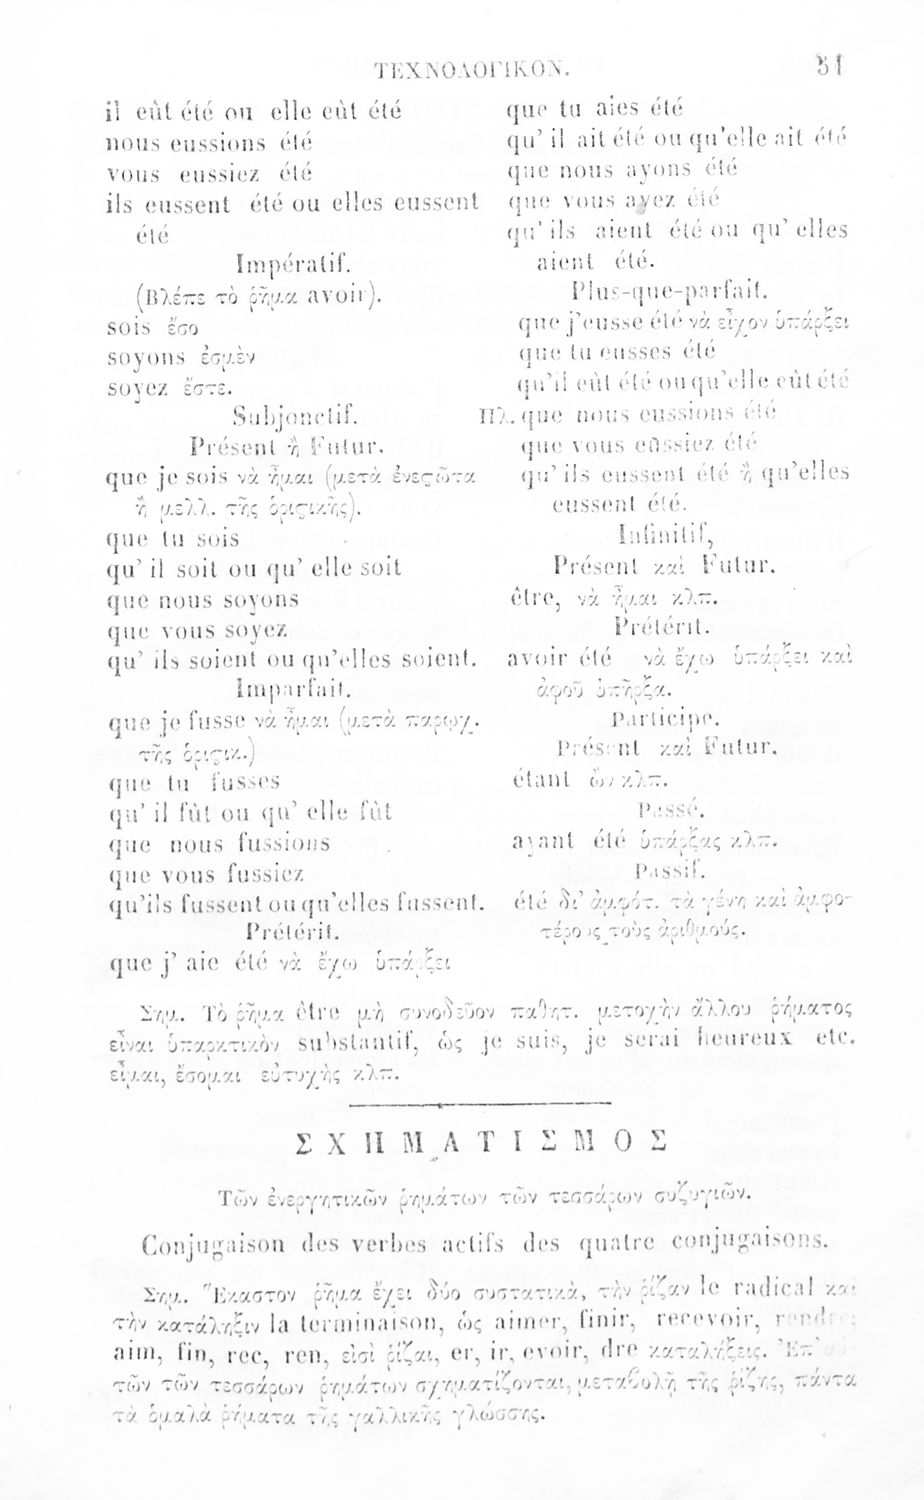 ΤΕΧΝΟΛΟΓΙΚΟΝ. 51
il eût été ou elle eût été
nous eussions été
vous eussiez été
ils eussent été ou elles eussent
été
Impératif.
(Βλέπε τὸ ῥῆμα avoir).
sois ἔσο
soyons ἐσμὲν
soyez ἔστε.
Subjonctif.
Présent ἢ Futur.
que je sois νὰ ἦμαι (μετὰ ἐνεςῶτα
ἢ μελλ. τῆς ὁριςικῆς).
que tu sois
qu' il soit ou qu' elle soit
que nous soyons
que vous soyez
qu' ils soient ou qu'elles soient.
Imparfait.
que je fusse νὰ ἦμαι (μετὰ παρωχ.
τῆς ὁριςικ.)
que tu fusses
qu' il fût ou qu' elle fût
que nous fussions
que vous fussiez
qu'ils fussent ou qu'elles fussent.
Prétérit.
que j' aie été νὰ ἔχω ὑπάρξει
que tu aies été
qu' il ait été ou qu'elle ait été
que nous ayons été
que vous ayez été
qu' ils aient été ou qu' elles
aient été.
Plus-que-parfait.
que j'eusse été νὰ εἶχον ὑπάρξει
que tu eusses été
qu'il eût été ou qu'elle eût été
Πλ. que nous eussions été
que vous eussiez été
qu' ils eussent été ἢ qu'elles
eussent été.
Infinitif,
Présent καὶ Futur.
être, νὰ ἦμαι κλπ.
Prétérit.
avoir été νὰ ἔχω ὑπάρξει καὶ
ἀφοῦ ὑπῆρξα.
Participe.
Présent καὶ Futur.
étant ὢν κλπ.
Passé.
ayant été ὑπάρξας κλπ.
Passif.
été δι' ἀμφότ. τὰ γένη καὶ ἀμφο-
τέρους τοὺς ἀριθμούς.
Σημ. Τὸ ῥῆμα être μὴ συνοδεῦον παθητ. μετοχὴν ἄλλου ῥήματος
εἶναι ὑπαρκτικὸν substantif, ὡς je suis, je serai heureux etc.
εἶμαι, ἔσομαι εὐτυχὴς κλπ.
ΣΧΗΜΑΤΙΣΜΟΣ
Τῶν ἐνεργητικῶν ῥημάτων τῶν τεσσάρων συζυγιῶν.
Conjugaison des verbes actifs des quatre conjugaisons.
Σημ. Ἕκαστον ῥῆμα ἔχει δύο συστατικὰ, τὴν ῥίζαν le radical καὶ
τὴν κατάληξιν la terminaison, ὡς aimer, finir, recevoir, rendre;
aim, fin, rec, ren, εἰσὶ ῥίζαι, er, ir, evoir, dre καταλήξεις. Ἐπ'
τῶν τῶν τεσσάρων ῥημάτων σχηματίζονται, μεταβολῇ τῆς ῥίζης, πάντα
τὰ ὁμαλὰ ῥήματα τῆς γαλλικῆς γλώσσης.